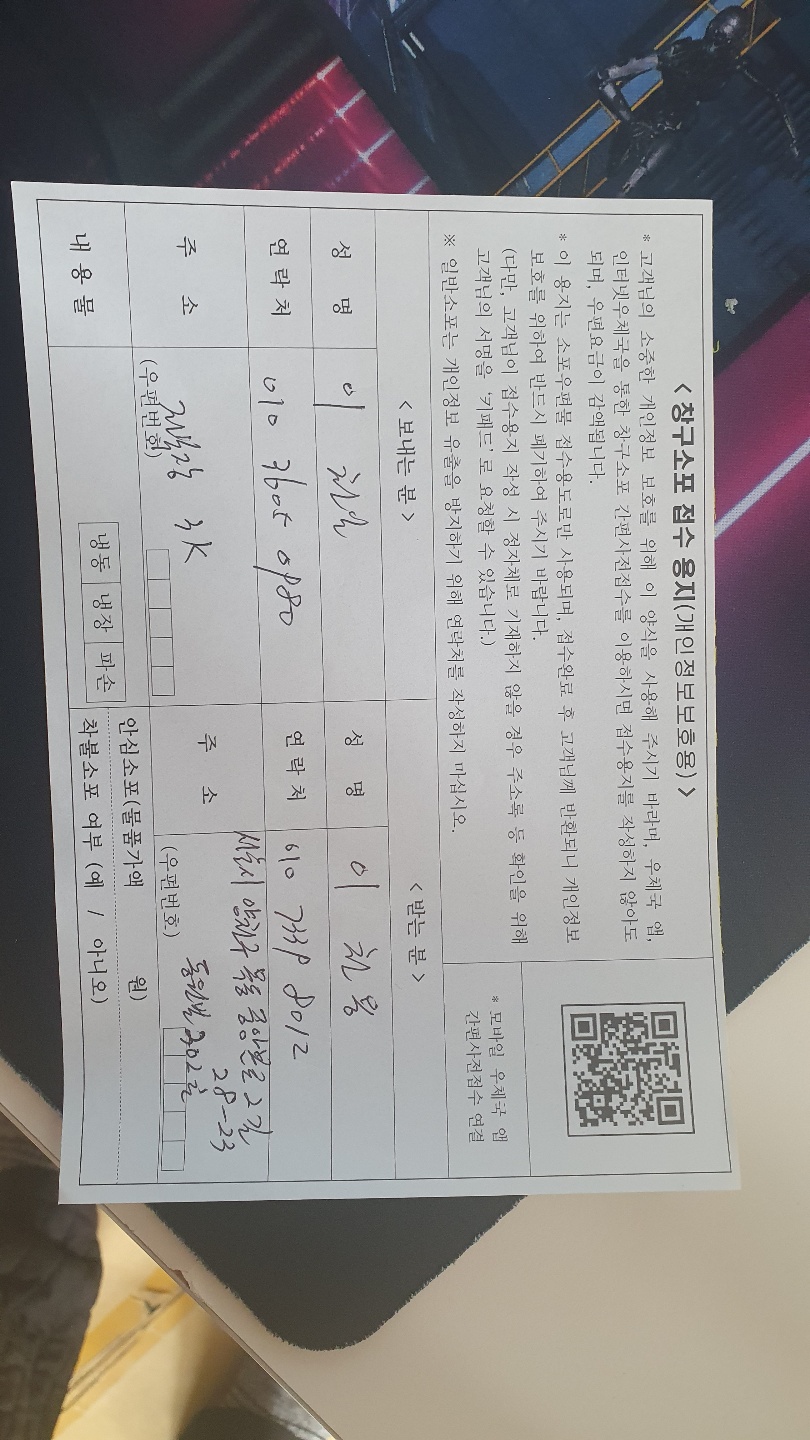 < 창구소포 접수 용지(개인정보보호용) >
* 고객님의 소중한 개인정보 보호를 위해 이 양식을 사용해 주시기 바라며, 우체국 앱,
인터넷우체국을 통한 창구소포 간편사전접수를 이용하시면 접수용지를 작성하지 않아도
되며, 우편요금이 감액됩니다.
* 이 용지는 소포우편물 접수용도로만 사용되며, 접수완료 후 고객님께 반환되니 개인정보
보호를 위하여 반드시 폐기하여 주시기 바랍니다.
(다만, 고객님이 접수용지 작성 시 정자체로 기재하지 않을 경우 주소록 등 확인을 위해
고객님의 서명을 '키패드'로 요청할 수 있습니다.)
※ 일반소포는 개인정보 유출을 방지하기 위해 연락처를 작성하지 마십시오.
* 모바일 우체국 앱
간편사전접수 연결
< 보내는 분 >
< 받는 분 >
성 명
이
성 명
이
연 락 처
010
연 락 처
010 8012
주 소
(우편번호)
주 소
양천구 2길
28-23
(우편번호)
302호
내 용 물
냉동 냉장 파손
안심소포(물품가액 원)
착불소포 여부 (예 / 아니오)